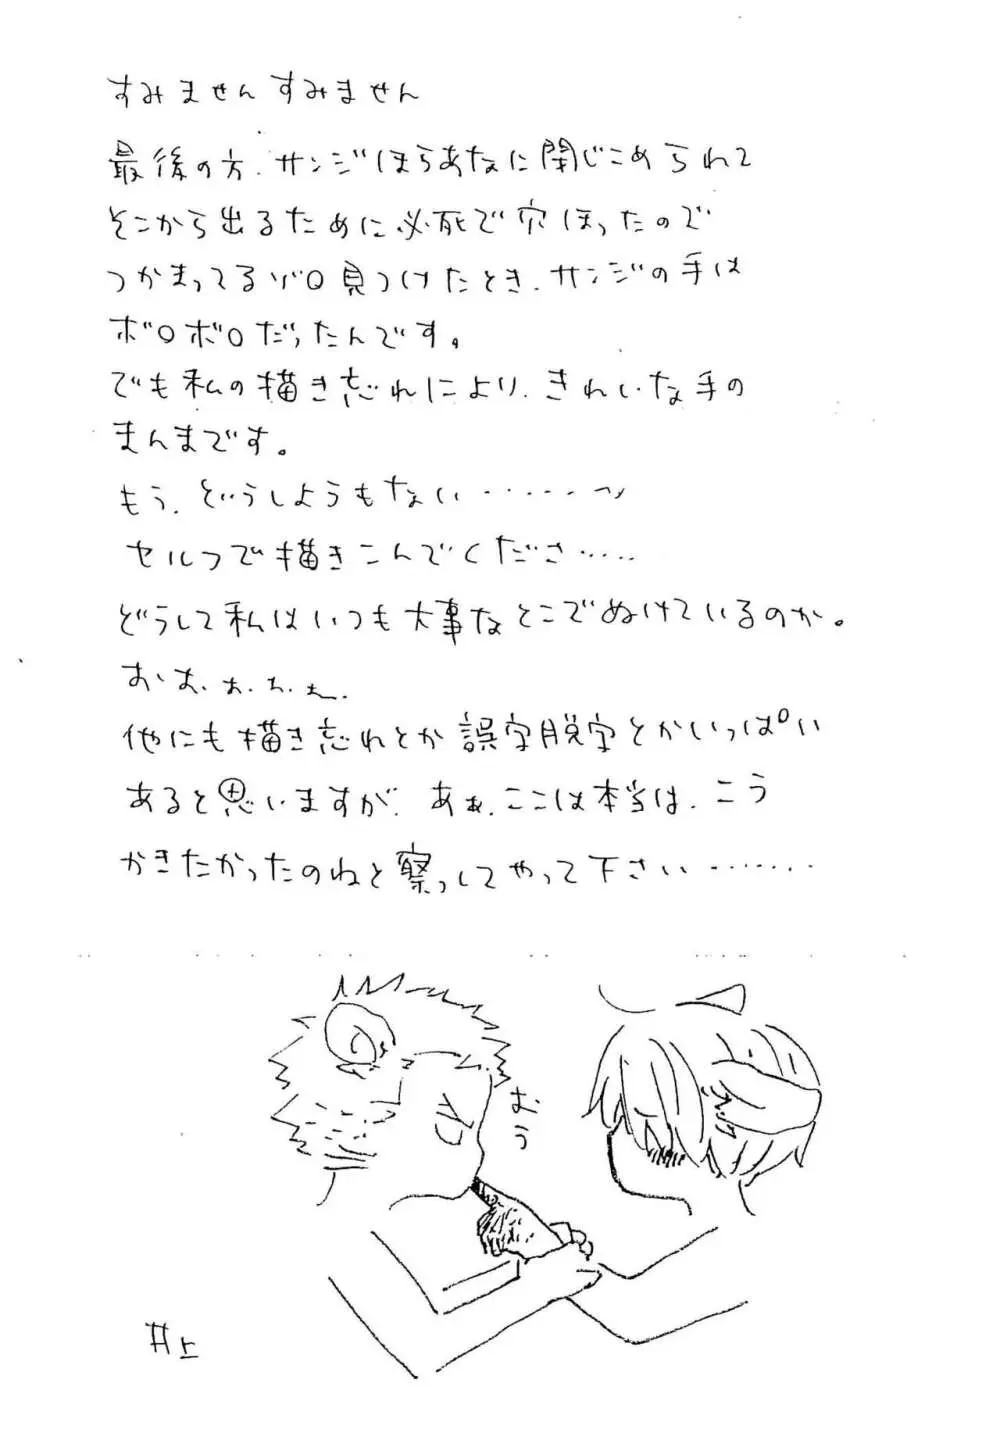 すみませんすみません
最後の方、サンジほらあなに閉じこめられて
そこから出るために必死で穴ほったので
つかまってるゾロ見つけたとき、サンジの手は
ボロボロだったんです。
でも私の描き忘れにより、きれいな手の
まんまです。
もう、どうしようもない‥‥‥ッ
セルフで描きこんでくださ‥‥‥
どうして私はいつも大事なとこでぬけているのか。
おぉ、ぉ、ぉ、ぉ、
他にも描き忘れとか誤字脱字とかいっぱい
あると思いますが、あぁ、ここは本当は、こう
かきたかったのねと察っしてやって下さい‥‥‥‥
むう
井上